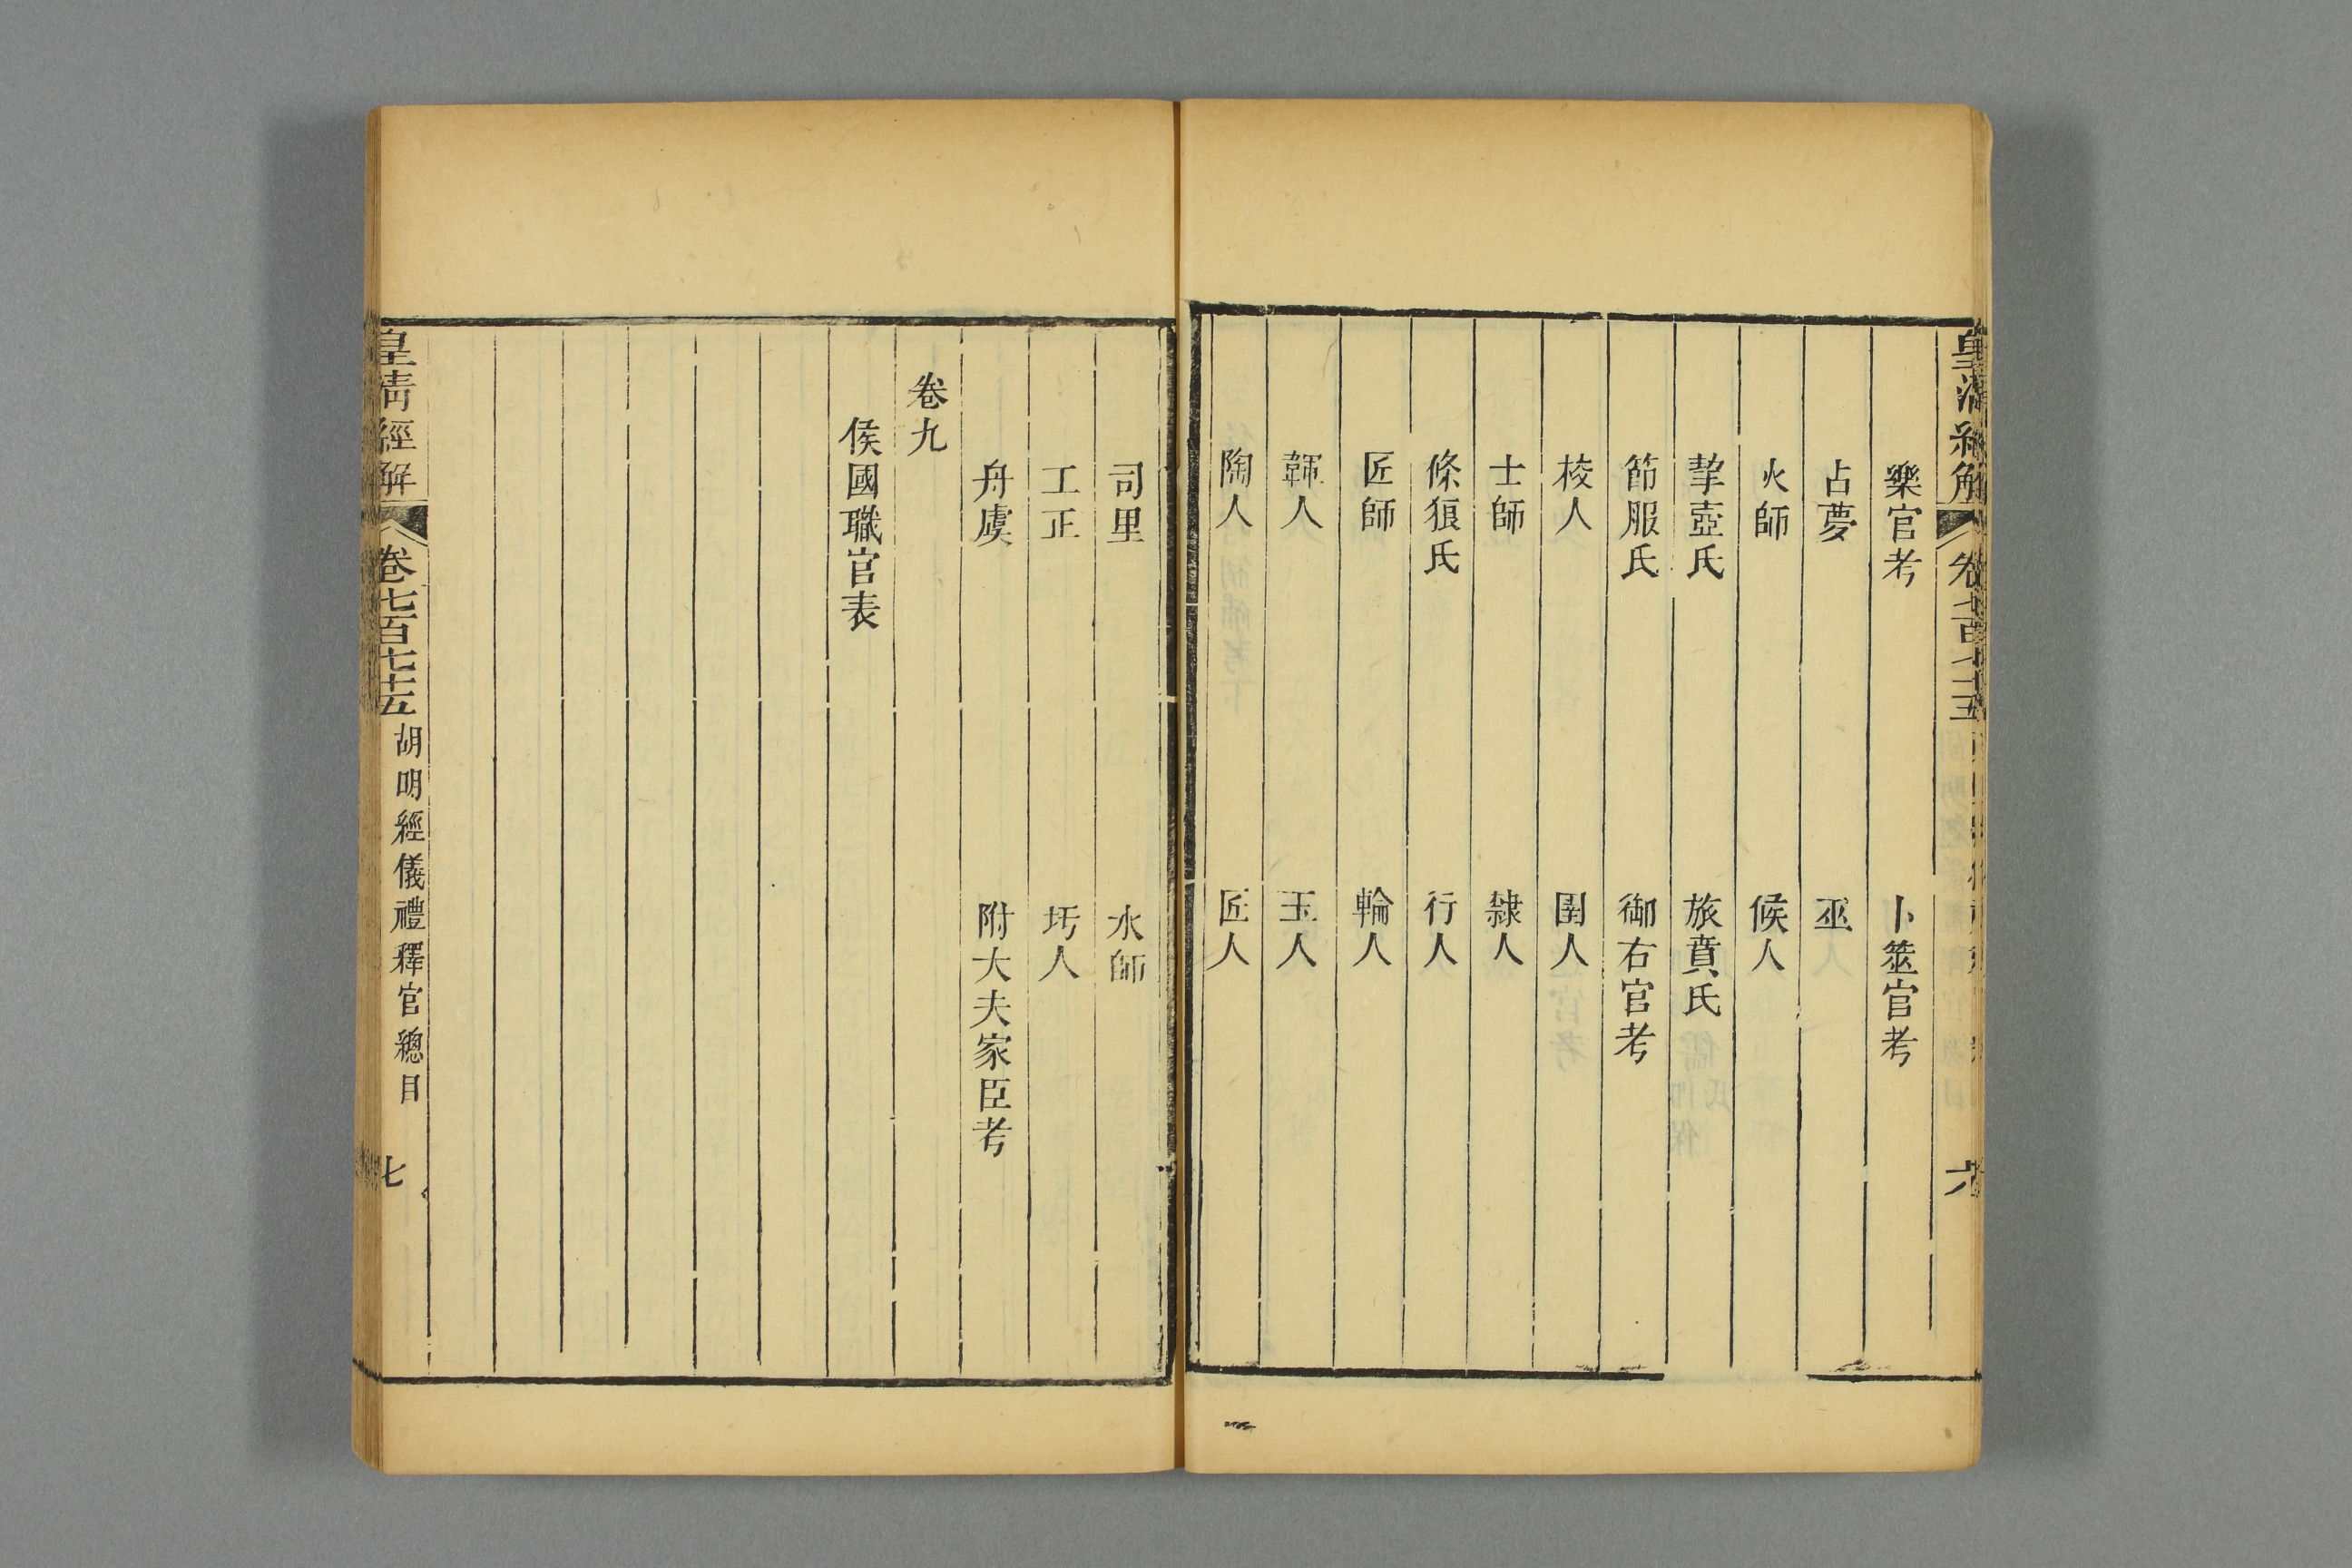 樂官考　卜筮官考
占夢　巫
火師　候人
挈壺氏　旅賁氏
節服氏　御右官考
校人　圉人
士師　隸人
條狼氏　行人
匠師　輪人
韗人　玉人
陶人　匠人
六
司里　水師
工正　圬人
舟虞　附大夫家臣考
卷九
侯國職官表
皇清經解　卷七百七十五　胡明經儀禮釋官總目　七